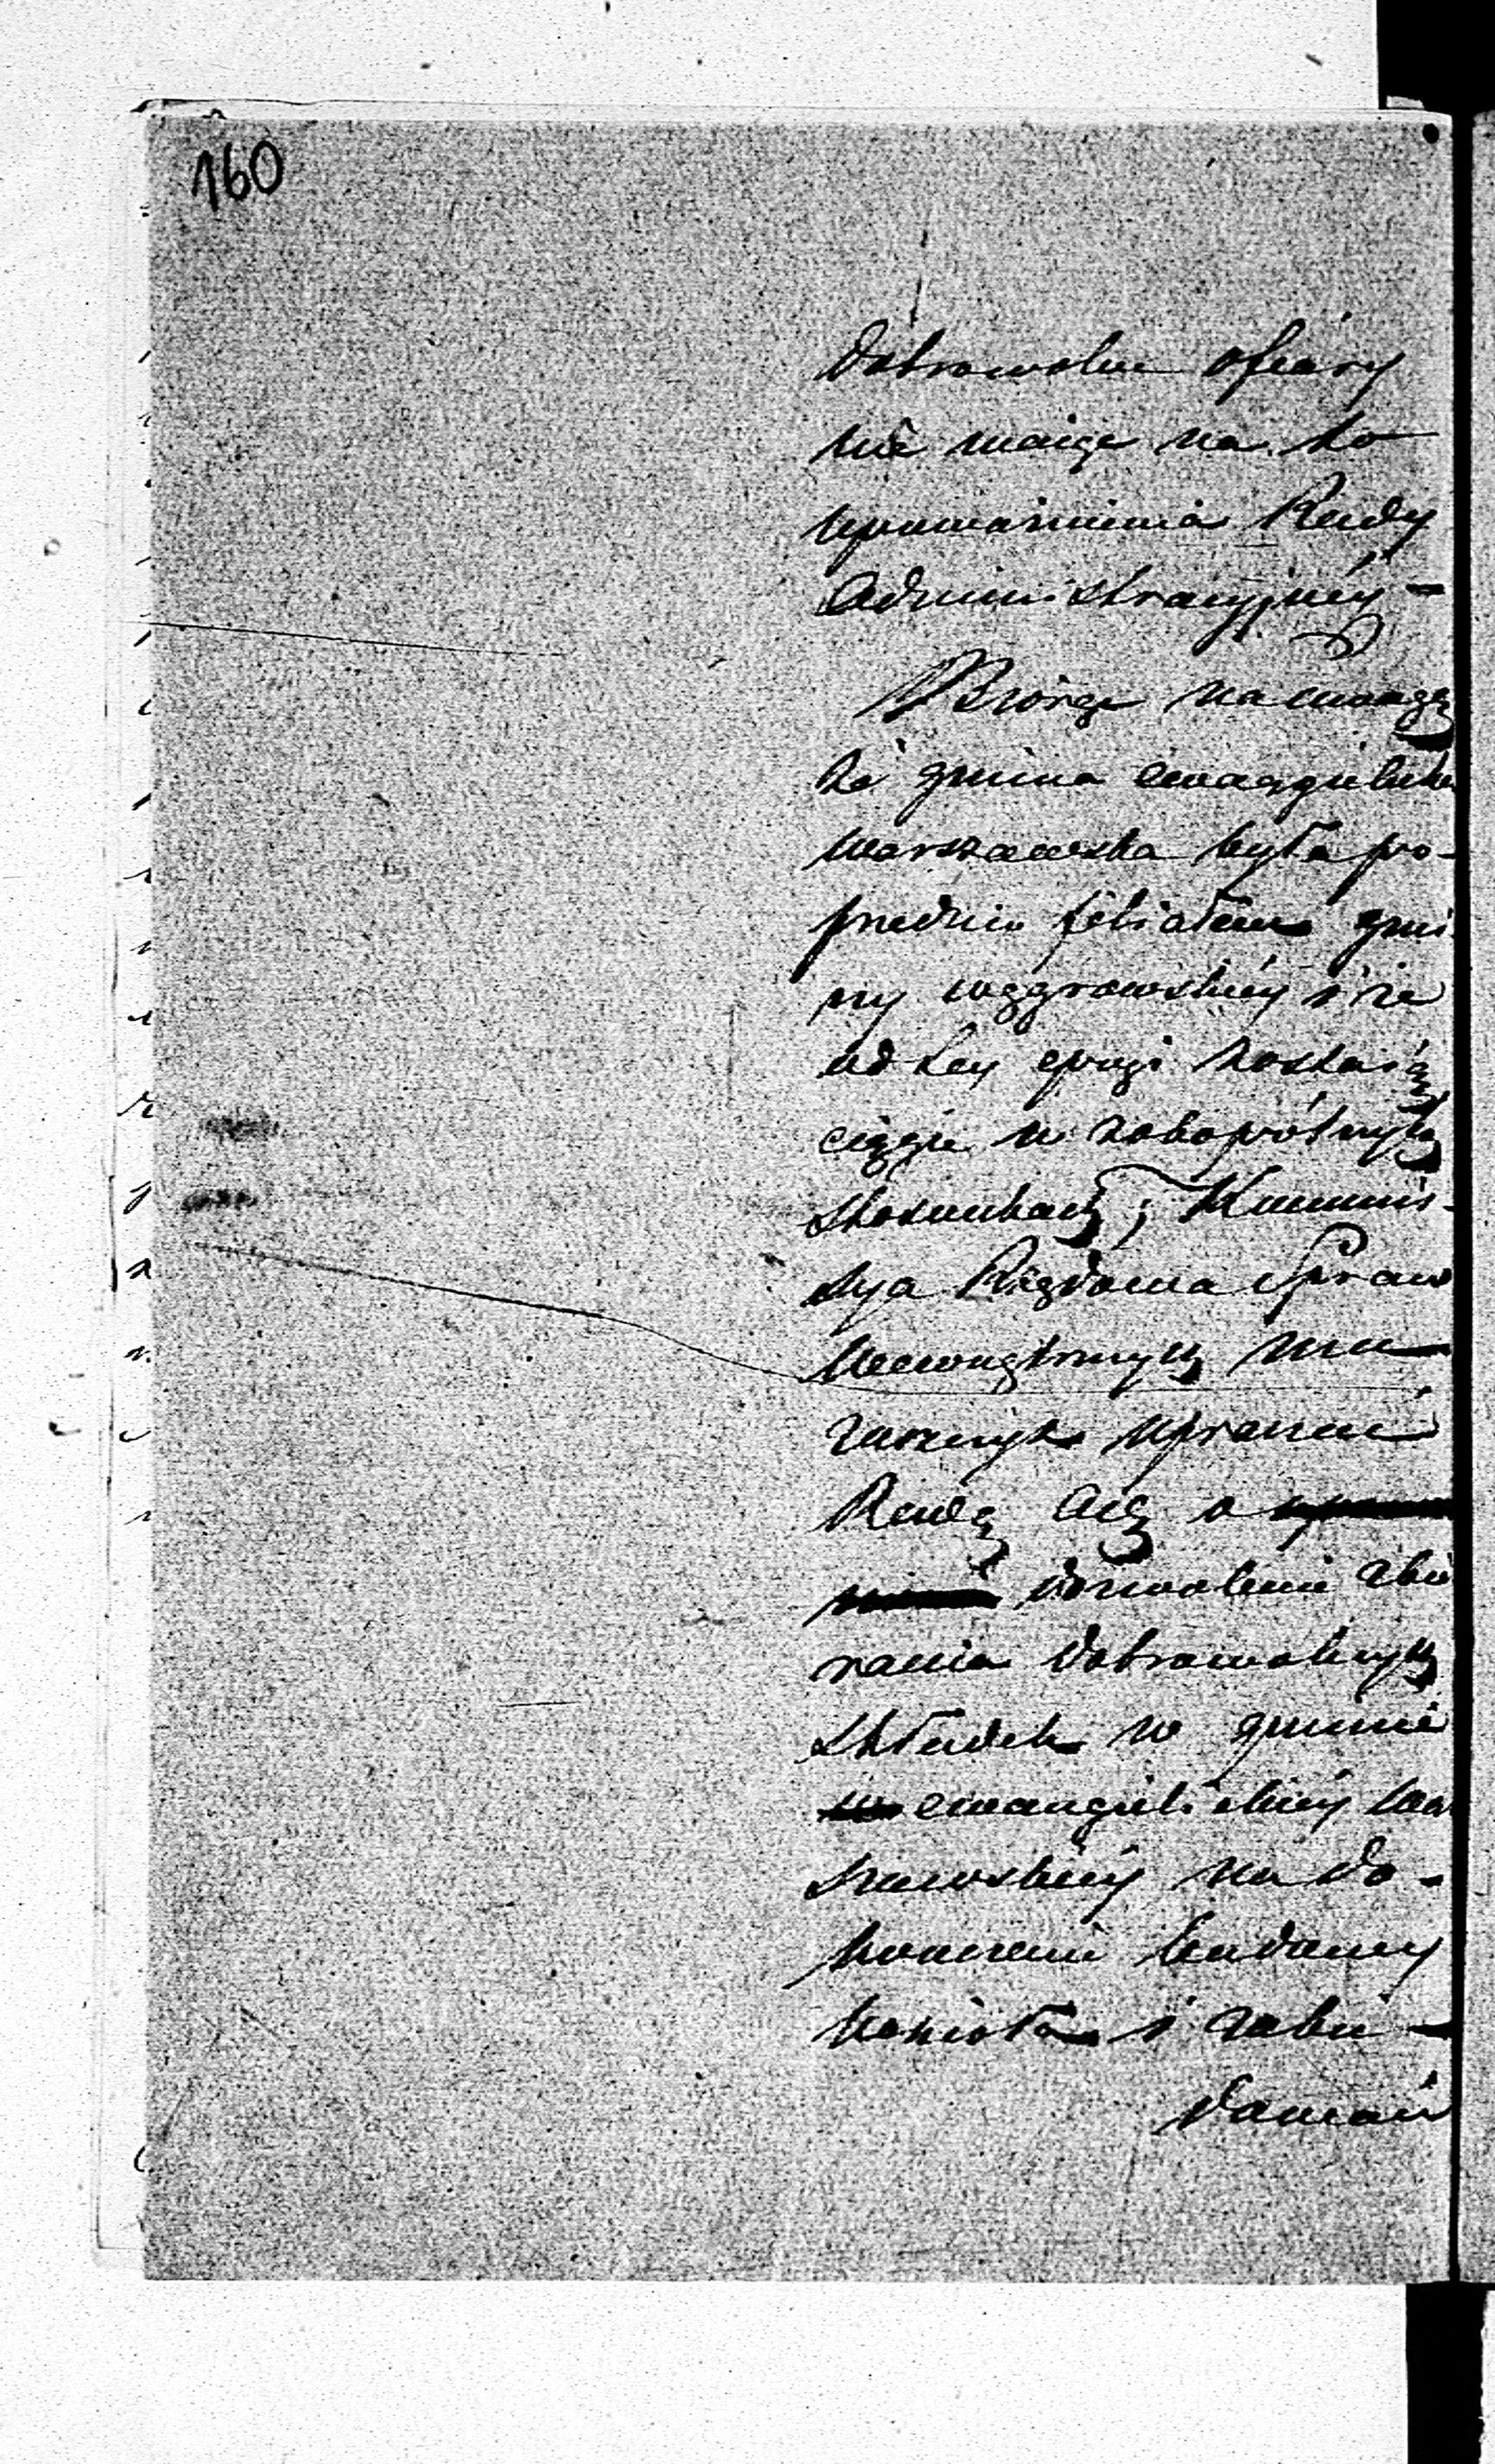 160
dobrowolne ofiary
nie maiąc na to
upoważnienia Rady
Administracyjnéy -
Biorąc na uwagę
że gmina ewangielicka
warszawska była po-
przednio filiałem gmi
ny węgrowskiéy i że
od tey epogi zostaią
ciągle w zobopólnych
stosunkach; Kommis-
sya Rządowa Spraw
Wewnętrznych ma
zaszczyt upraszać
Radę Adą o
dozwolenie zbie
rania dobrowolnych
składek w gminie
ewangielickiéy war
szawskiéy na do-
kończenie budowy
kościoła i zabu-
dowań